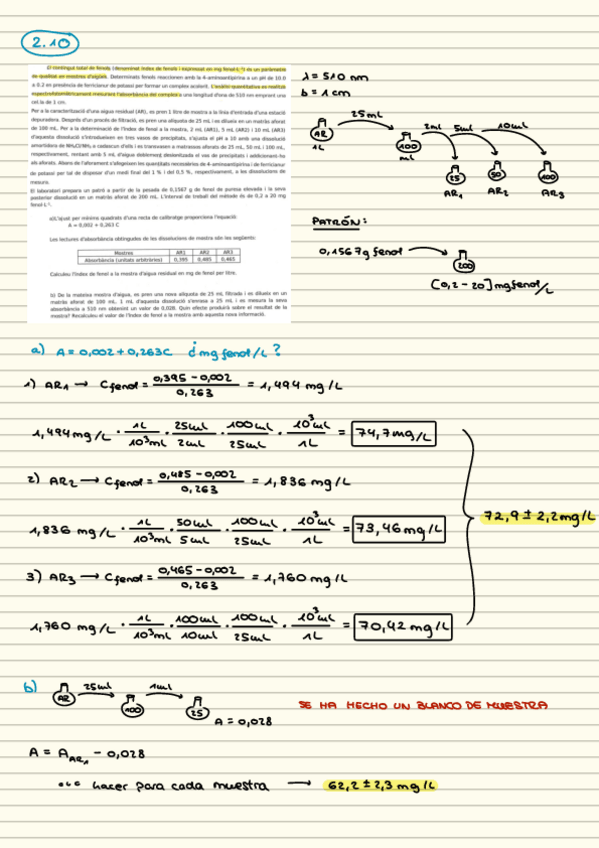 2.10
El contingut total de fenols (denominat índex de fenols i expressat en mg fenol·L⁻¹) és un paràmetre
de qualitat en mostres d'aigües. Determinats fenols reaccionen amb la 4-aminoantipirina a un pH de 10.0
± 0.2 en presència de ferricianur de potassi per formar un complex acolorit. L'anàlisi quantitativa es realitza
espectrofotomètricament mesurant l'absorbància del complex a una longitud d'ona de 510 nm emprant una
cel·la de 1 cm.
Per a la caracterització d'una aigua residual (AR), es pren 1 litre de mostra a la línia d'entrada d'una estació
depuradora. Després d'un procés de filtració, es pren una alíquota de 25 mL i es dilueix en un matràs aforat
de 100 mL. Per a la determinació de l'índex de fenol a la mostra, 2 mL (AR1), 5 mL (AR2) i 10 mL (AR3)
d'aquesta dissolució s'introdueixen en tres vasos de precipitats, s'ajusta el pH a 10 amb una dissolució
amortidora de NH₄Cl/NH₃ a cadascun d'ells i es transvasen a matrassos aforats de 25 mL, 50 mL i 100 mL,
respectivament, rentant amb 5 mL d'aigua doblement desionitzada el vas de precipitats i addicionant-ho
als aforats. Abans de l'aforament s'afegeixen les quantitats necessàries de 4-aminoantipirina i de ferricianur
de potassi per tal de disposar d'un medi final del 1 % i del 0,5 %, respectivament, a les dissolucions de
mesura.
El laboratori prepara un patró a partir de la pesada de 0,1567 g de fenol de puresa elevada i la seva
posterior dissolució en un matràs aforat de 200 mL. L'interval de treball del mètode és de 0,2 a 20 mg
fenol·L⁻¹.
a) L'ajust per mínims quadrats d'una recta de calibratge proporciona l'equació
A = 0,002 + 0,263 C
Les lectures d'absorbància obtingudes de les dissolucions de mostra són les següents:
Mostres AR1 AR2 AR3
Absorbància (unitats arbitràries) 0,395 0,485 0,465
Calculeu l'índex de fenol a la mostra d'aigua residual en mg de fenol per litre.
b) De la mateixa mostra d'aigua, es pren una nova alíquota de 25 mL filtrada i es dilueix en un
matràs aforat de 100 mL. 1 mL d'aquesta dissolució s'enrasa a 25 mL i es mesura la seva
absorbància a 510 nm obtenint un valor de 0,028. Quin efecte produirà sobre el resultat de la
mostra? Recalculeu el valor de l'índex de fenol a la mostra amb aquesta nova informació.
λ = 510 nm
b = 1 cm
25mL
AR
1L
100
mL
2mL 5mL 10mL
25 50 100
AR₁ AR₂ AR₃
PATRÓN:
0,1567g fenol
200
[0,2 - 20] mg fenol/L
a) A = 0,002 + 0,263C ¿mg fenol/L?
1) AR₁ → C fenol = (0,395 - 0,002)/0,263 = 1,494 mg/L
1,494 mg/L · 1L/10³mL · 25mL/2mL · 100mL/25mL · 10³mL/1L = 74,7 mg/L
2) AR₂ → C fenol = (0,485 - 0,002)/0,263 = 1,836 mg/L
1,836 mg/L · 1L/10³mL · 50mL/5mL · 100mL/25mL · 10³mL/1L = 73,46 mg/L
72,9 ± 2,2 mg/L
3) AR₃ → C fenol = (0,465 - 0,002)/0,263 = 1,760 mg/L
1,760 mg/L · 1L/10³mL · 100mL/10mL · 100mL/25mL · 10³mL/1L = 70,42 mg/L
b) AR 25mL 100 1mL 25
A = 0,028
SE HA HECHO UN BLANCO DE MUESTRA
A = A_AR₁ - 0,028
... hacer para cada muestra → 62,2 ± 2,3 mg/L